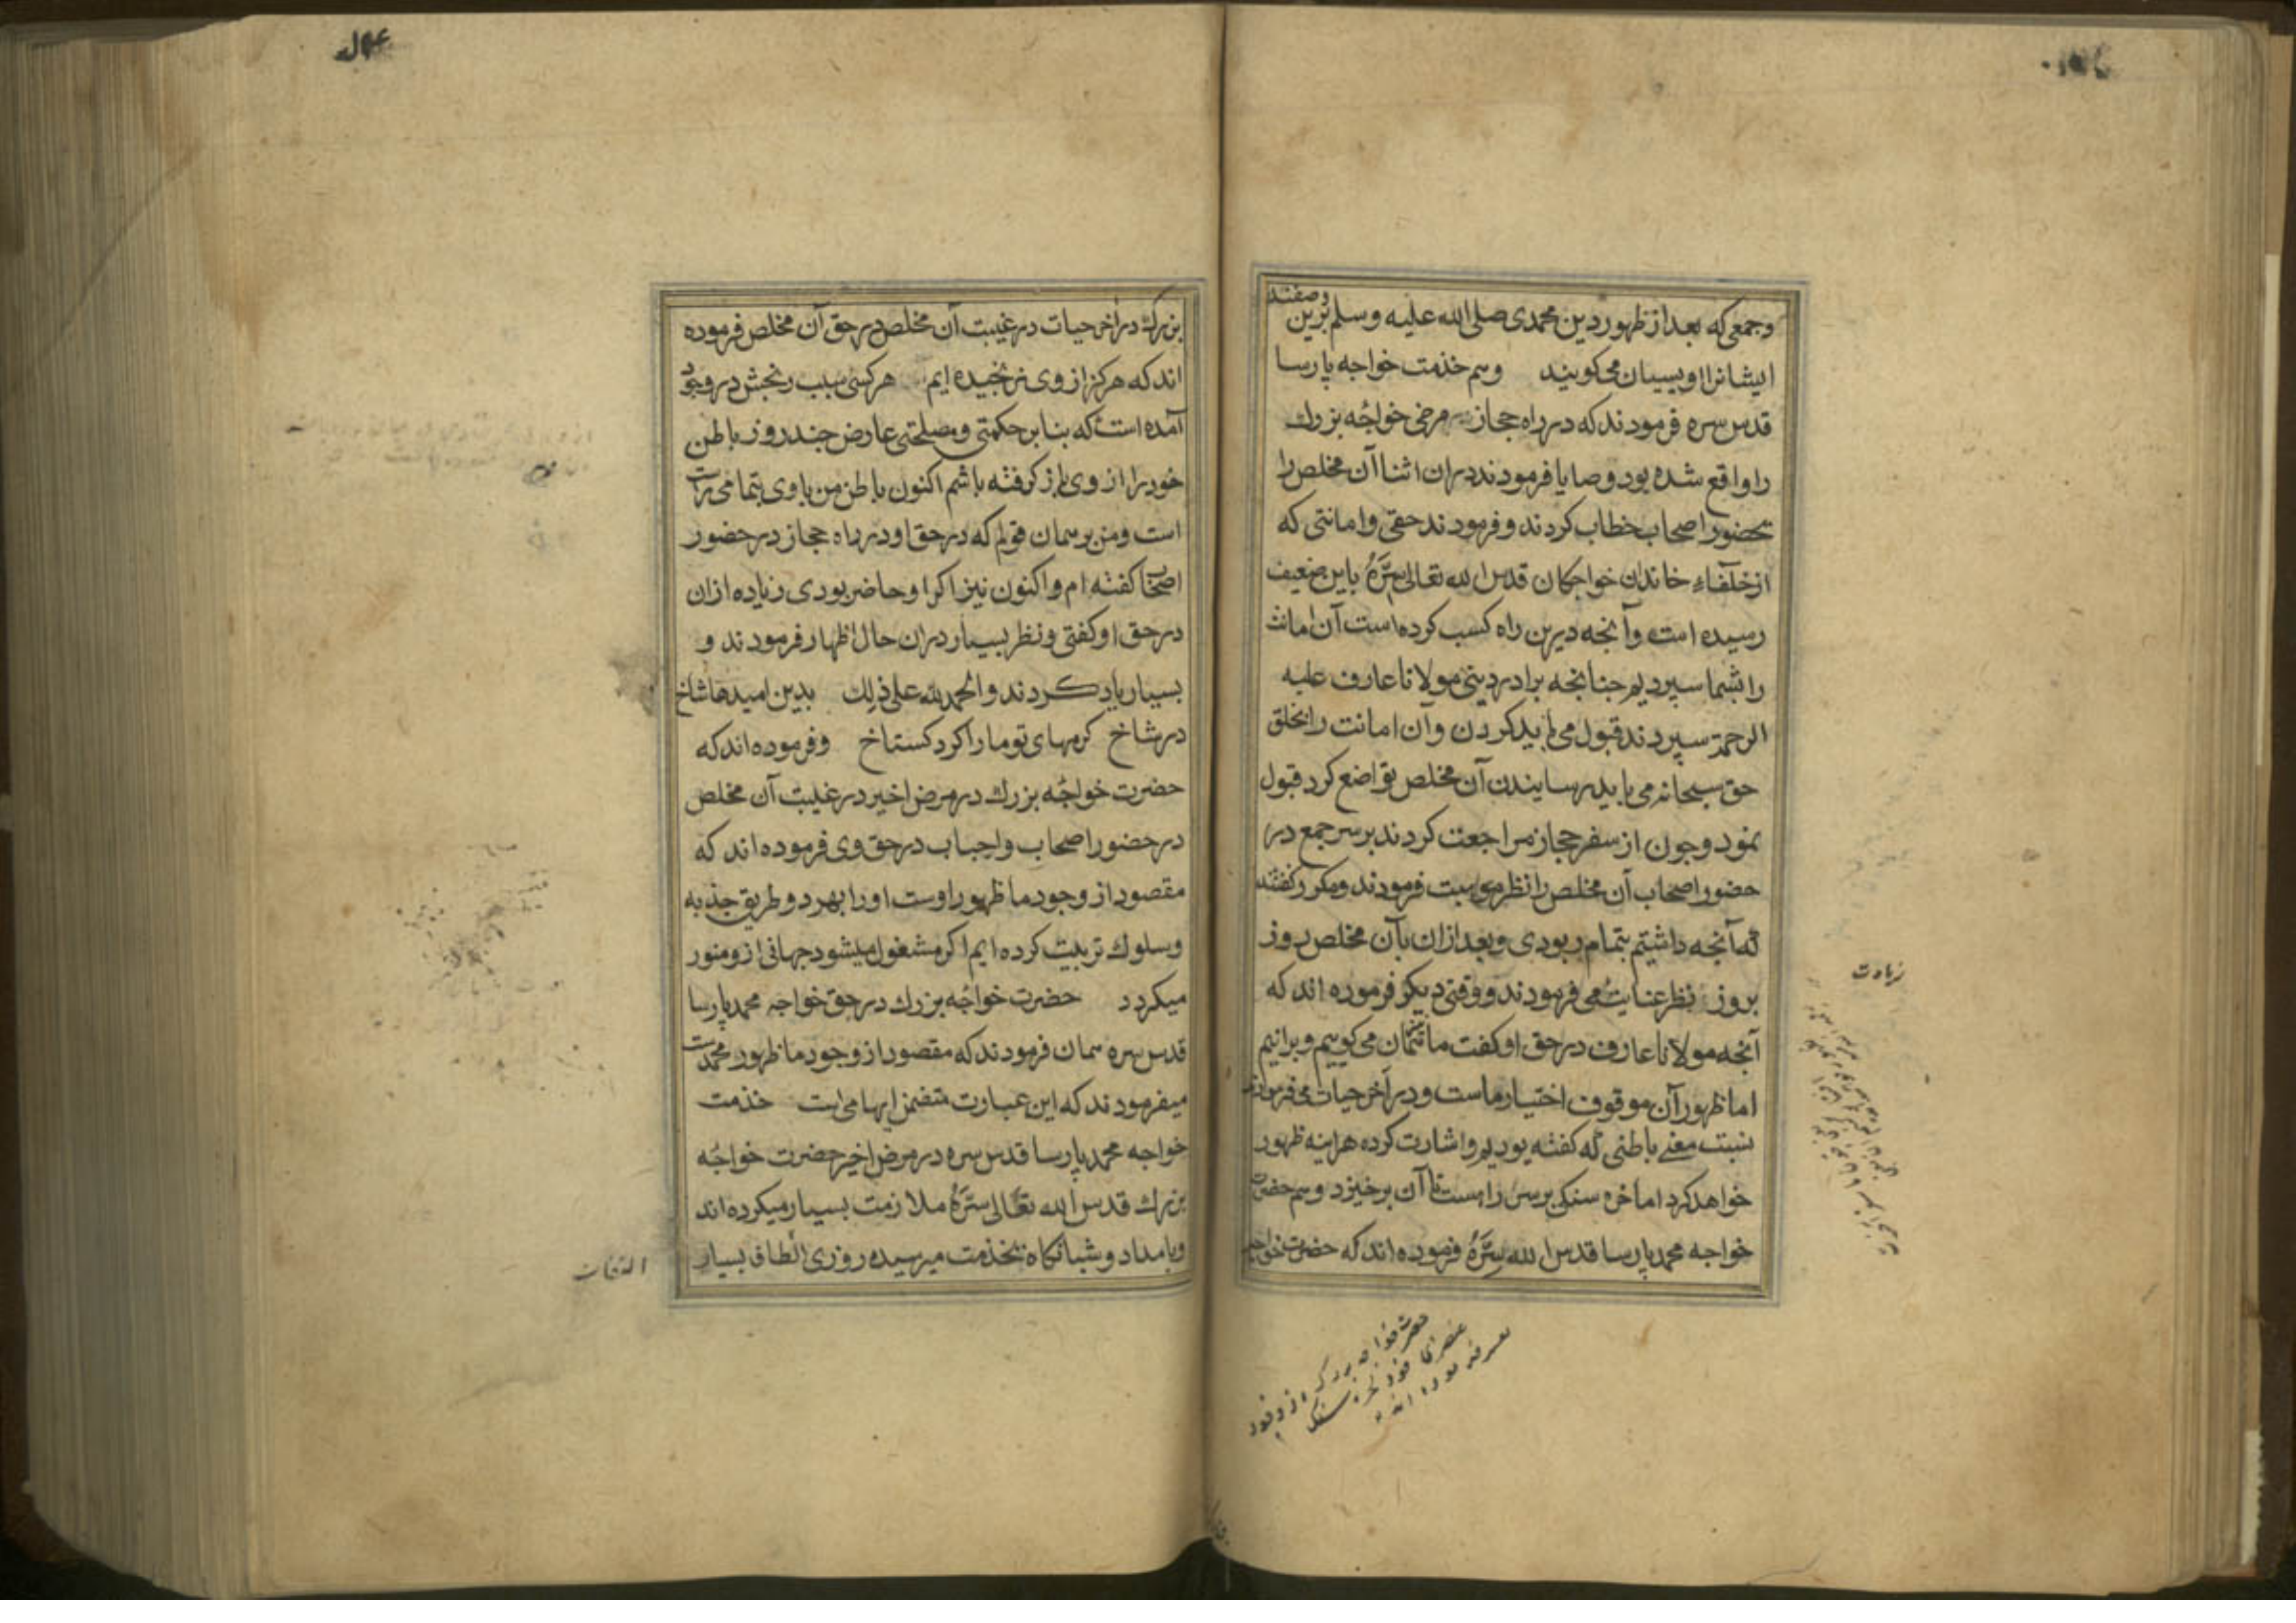 وجمعی که بعد از ظهور دین محمدی صلی الله علیه وسلم برین وصفند
ایشانرا اویسیان می کویند وهم خدمت خواجه پارسا
قدس سره فرمودند که در راه حجاز مرضی خواجه بزرك
را واقع شده بود وصایا فرمودند دران اثنا آن مخلص را
بحضور اصحاب خطاب کردند و فرمودند حقی وامانتی که
از خلفاء خاندان خواجکان قدس الله تعالی سره باین ضعیف
رسیده است وآنجه درین راه کسب کرده است آن امانت
را بشما سپردیم جنانجه برادر دینی مولانا عارف علیه
الرحمة سپردند قبول می باید کردن وآن امانت را بخلق
حق سبحانه می باید رسایندن آن مخلص تواضع کرد قبول
نمود وجون از سفر حجاز مراجعت کردند برسر جمع در
حضور اصحاب آن مخلص را نظر موهبت فرمودند ومکرر کفتند
که آنجه داشتیم بتمام ربودی وبعد ازان بآن مخلص روز
بروز نظر عنایت می فرمودند ووقتی دیکر فرموده اند که
آنجه مولانا عارف در حق او کفت ما همان می کوییم وبرانیم
اما ظهور آن موقوف اختیار ماست ودر آخر حیات می فرمودند
نسبت معنی باطنی که کفته بودیم واشارت کرده هراینه ظهور
خواهد کرد اما خره سنکی برسر راهست تا آن برخیزد وهم حضرت
خواجه محمد پارسا قدس الله سره فرموده اند که حضرت خواجه
زیادت
حضرت خواجه بزرک از وجود
عنصری خود بخره سنک
تعبیر فرموده اند
بزرك در آخر حیات در غیبت آن مخلص در حق آن مخلص فرموده
اند که هرکز از وی نرنجیده ایم هرکسی سبب رنجش در وجود
آمده است که بنا بر حکمتی ومصلحتی عارض جند روز باطن
خود را از وی باز کرفته باشم اکنون باطن من باوی بتمامی راست
است ومن بر همان قولم که در حق او در راه حجاز در حضور
اصحاب کفته ام واکنون نیز اکر او حاضر بودی زیاده ازان
در حق او کفتی ونظر بسیار دران حال اظهار فرمودند و
بسیار یاد کردند والحمد لله علی ذلك بدین امیدها شاخ
در شاخ کرمهای تو مارا کرد کستاخ وفرموده اند که
حضرت خواجه بزرك در مرض اخیر در غیبت آن مخلص
در حضور اصحاب واحباب در حق وی فرموده اند که
مقصود از وجود ما ظهور اوست اورا بهر دو طریق جذبه
وسلوك تربیت کرده ایم اکر مشغول میشود جهانی ازو منور
میکردد حضرت خواجه بزرك در حق خواجه محمد پارسا
قدس سره همان فرمودند که مقصود از وجود ما ظهور محمدست
میفرمودند که این عبارت متضمن ایهامی است خدمت
خواجه محمد پارسا قدس سره در مرض اخیر حضرت خواجه
بزرك قدس الله تعالی سره ملازمت بسیار میکرده اند
وبامداد وشبانکاه بخدمت میرسیده روزی الطاف بسیار
التفات